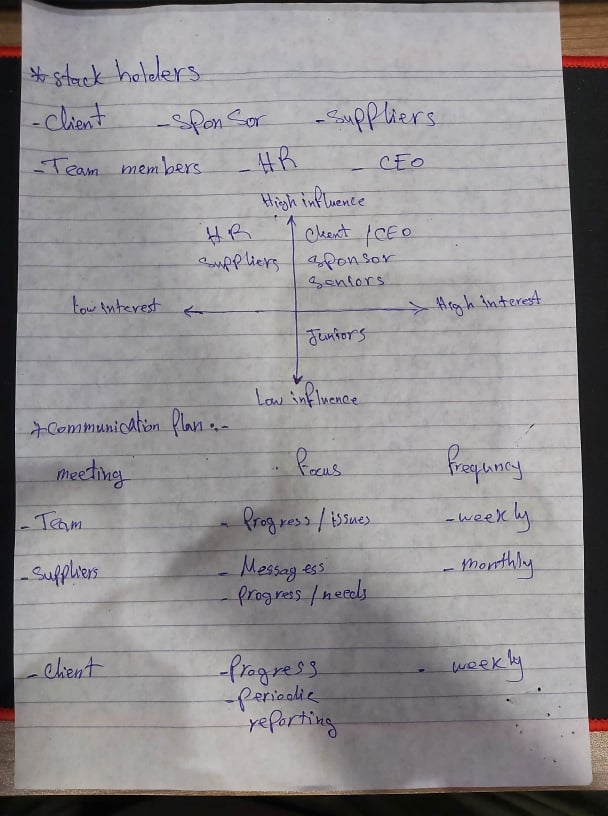 * stack holders
- Client - Sponsor - Suppliers
- Team members - HR - CEO
High influence
HR Client / CEO
Suppliers Sponsor
Seniors
Low interest High interest
Juniors
Low influence
* Communication Plan :-
meeting Focus Frequncy
- Team - Progress / issues - weekly
- Suppliers - Messagess - monthly
- Progress / needs
- Client - Progress - weekly
- Periodic
reporting